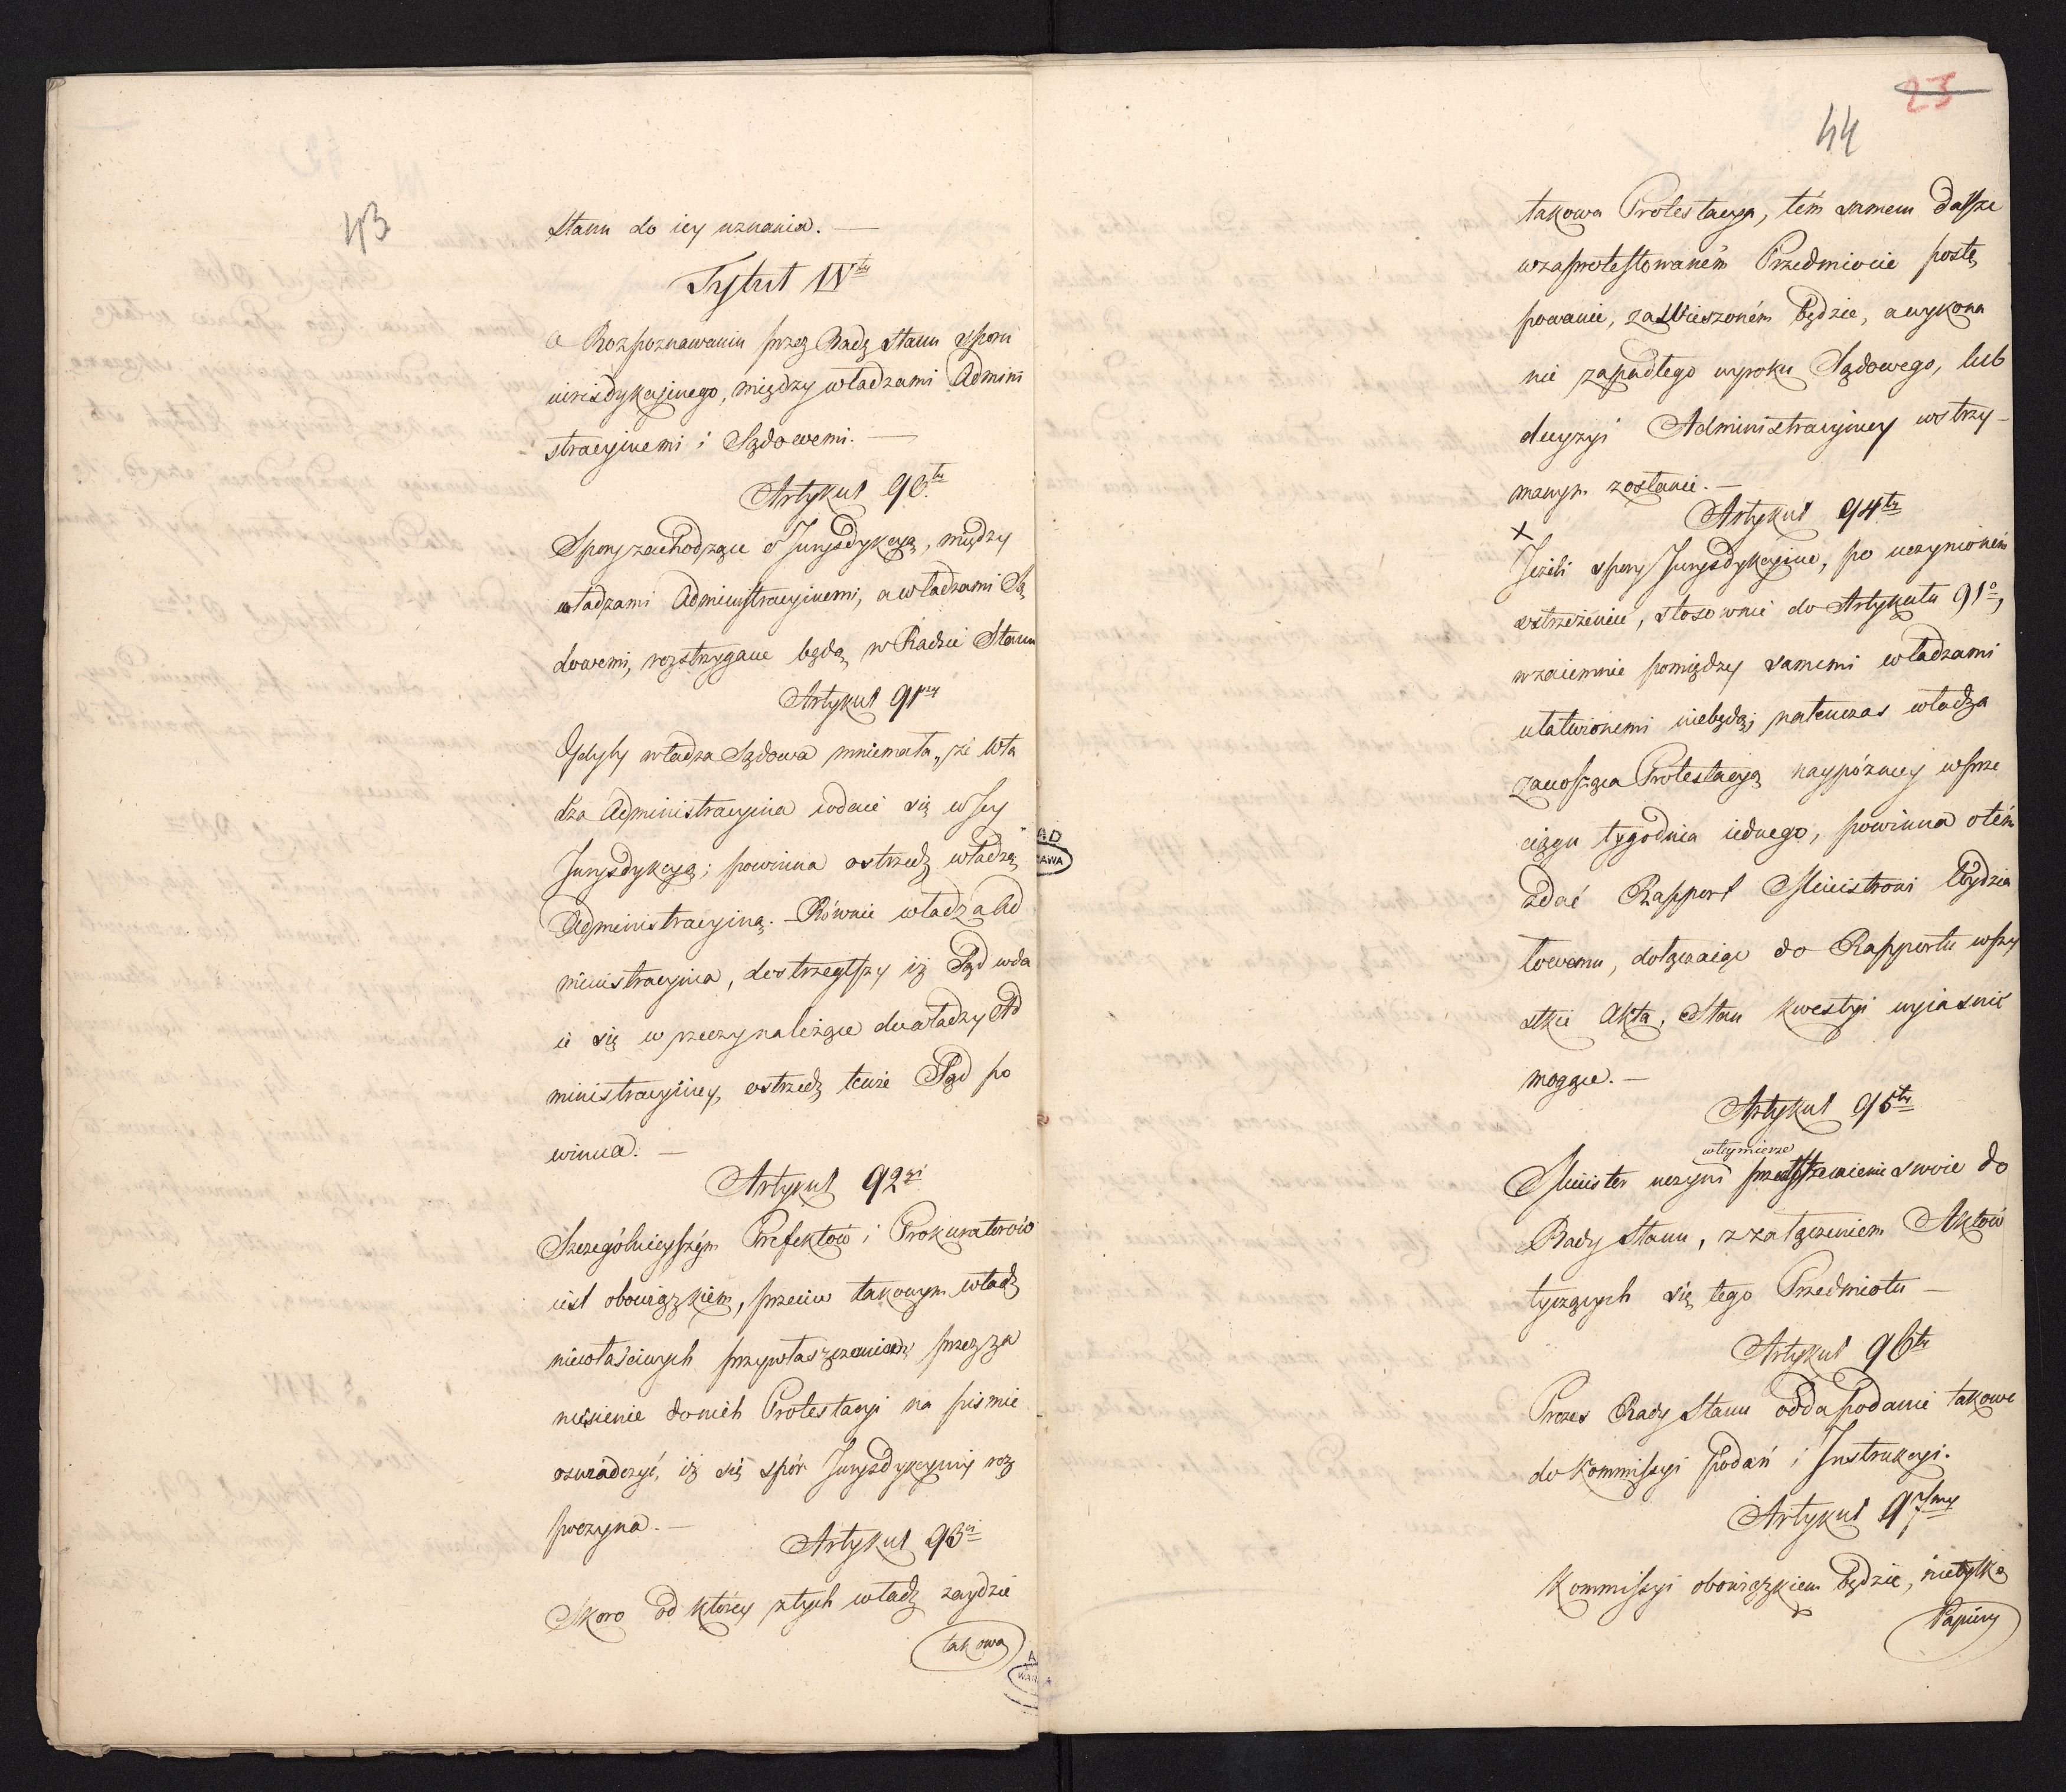 43
Stanu do iey uznania. —
Tytuł IV ty
o Rozpoznawaniu przez Radę Stanu sporu
iurisdykcyinego, między władzami Admini
stracyinemi i Sądowemi. —
Artykuł 90. ty
Spory zachodzące o Jurysdykcyą, między
władzami Administracyinemi, a władzami Są
dowemi, rozstrzygane będą w Radzie Stanu
Artykuł 91 szy
Gdyby władza Sądowa mniemała, że wła
dza Administracyina wdaie się w Jey
Jurysdykcyą; powinna ostrzedz władzę
Administracyiną. — Równie władza Ad
ministracyina, dostrzegłszy iż Sąd wda
ie się w rzeczy należące do władzy Ad
ministracyiney, ostrzedz tenże Sąd po
winna. —
Artykuł 92 gi
Szczególnieyszym Prefektów i Prokuratorów
iest obowiązkiem, przeciw takowym władz
niewłaściwych przywłaszczeniom przez za
niesienie do nich Protestacyi na pismie
oswiadczyć, iż się spór Jurysdykcyiny roz
poczyna. —
Artykuł 93 ci
Skoro od którey z tych władz zaydzie
takowa
23
44
takowa Protestacya, tém samem dalsze
w zaprotestowaném Przedmiocie postę
powanie, zawieszoném będzie, a wykona
nie zapadłego wyroku Sądowego, lub
decyzyi Administracyiney wstrzy-
manym zostanie. —
Artykuł 94 ty
x
Jeżeli spory Jurysdykcyine, po uczynioném
ostrzeżeniu, stosownie do Artykułu 91 o,
wzaiemnie pomiędzy samemi władzami
ułatwionemi niebędą; natenczas władza
zanosząca Protestacyą naypózniey w prze
ciągu tygodnia iednego, powinna o tém
zdać Rapport Ministrowi Wydzia
łowemu, dołączaiąc do Rapportu wszy
stkie Akta, Stan kwestyi wyiasnić
mogące. —
Artykuł 95 ty
w tey mierze
Minister uczyni przedstawienie swoie do
Rady Stanu, z załączeniem Aktów
tyczących się tego Przedmiotu —
Artykuł 96 ty
Prezes Rady Stanu odda podanie takowe
do Kommissyi Podań i Instrukcyi.
Artykuł 97 my
Kommissyi obowiązkiem będzie, nietylko
Papiery